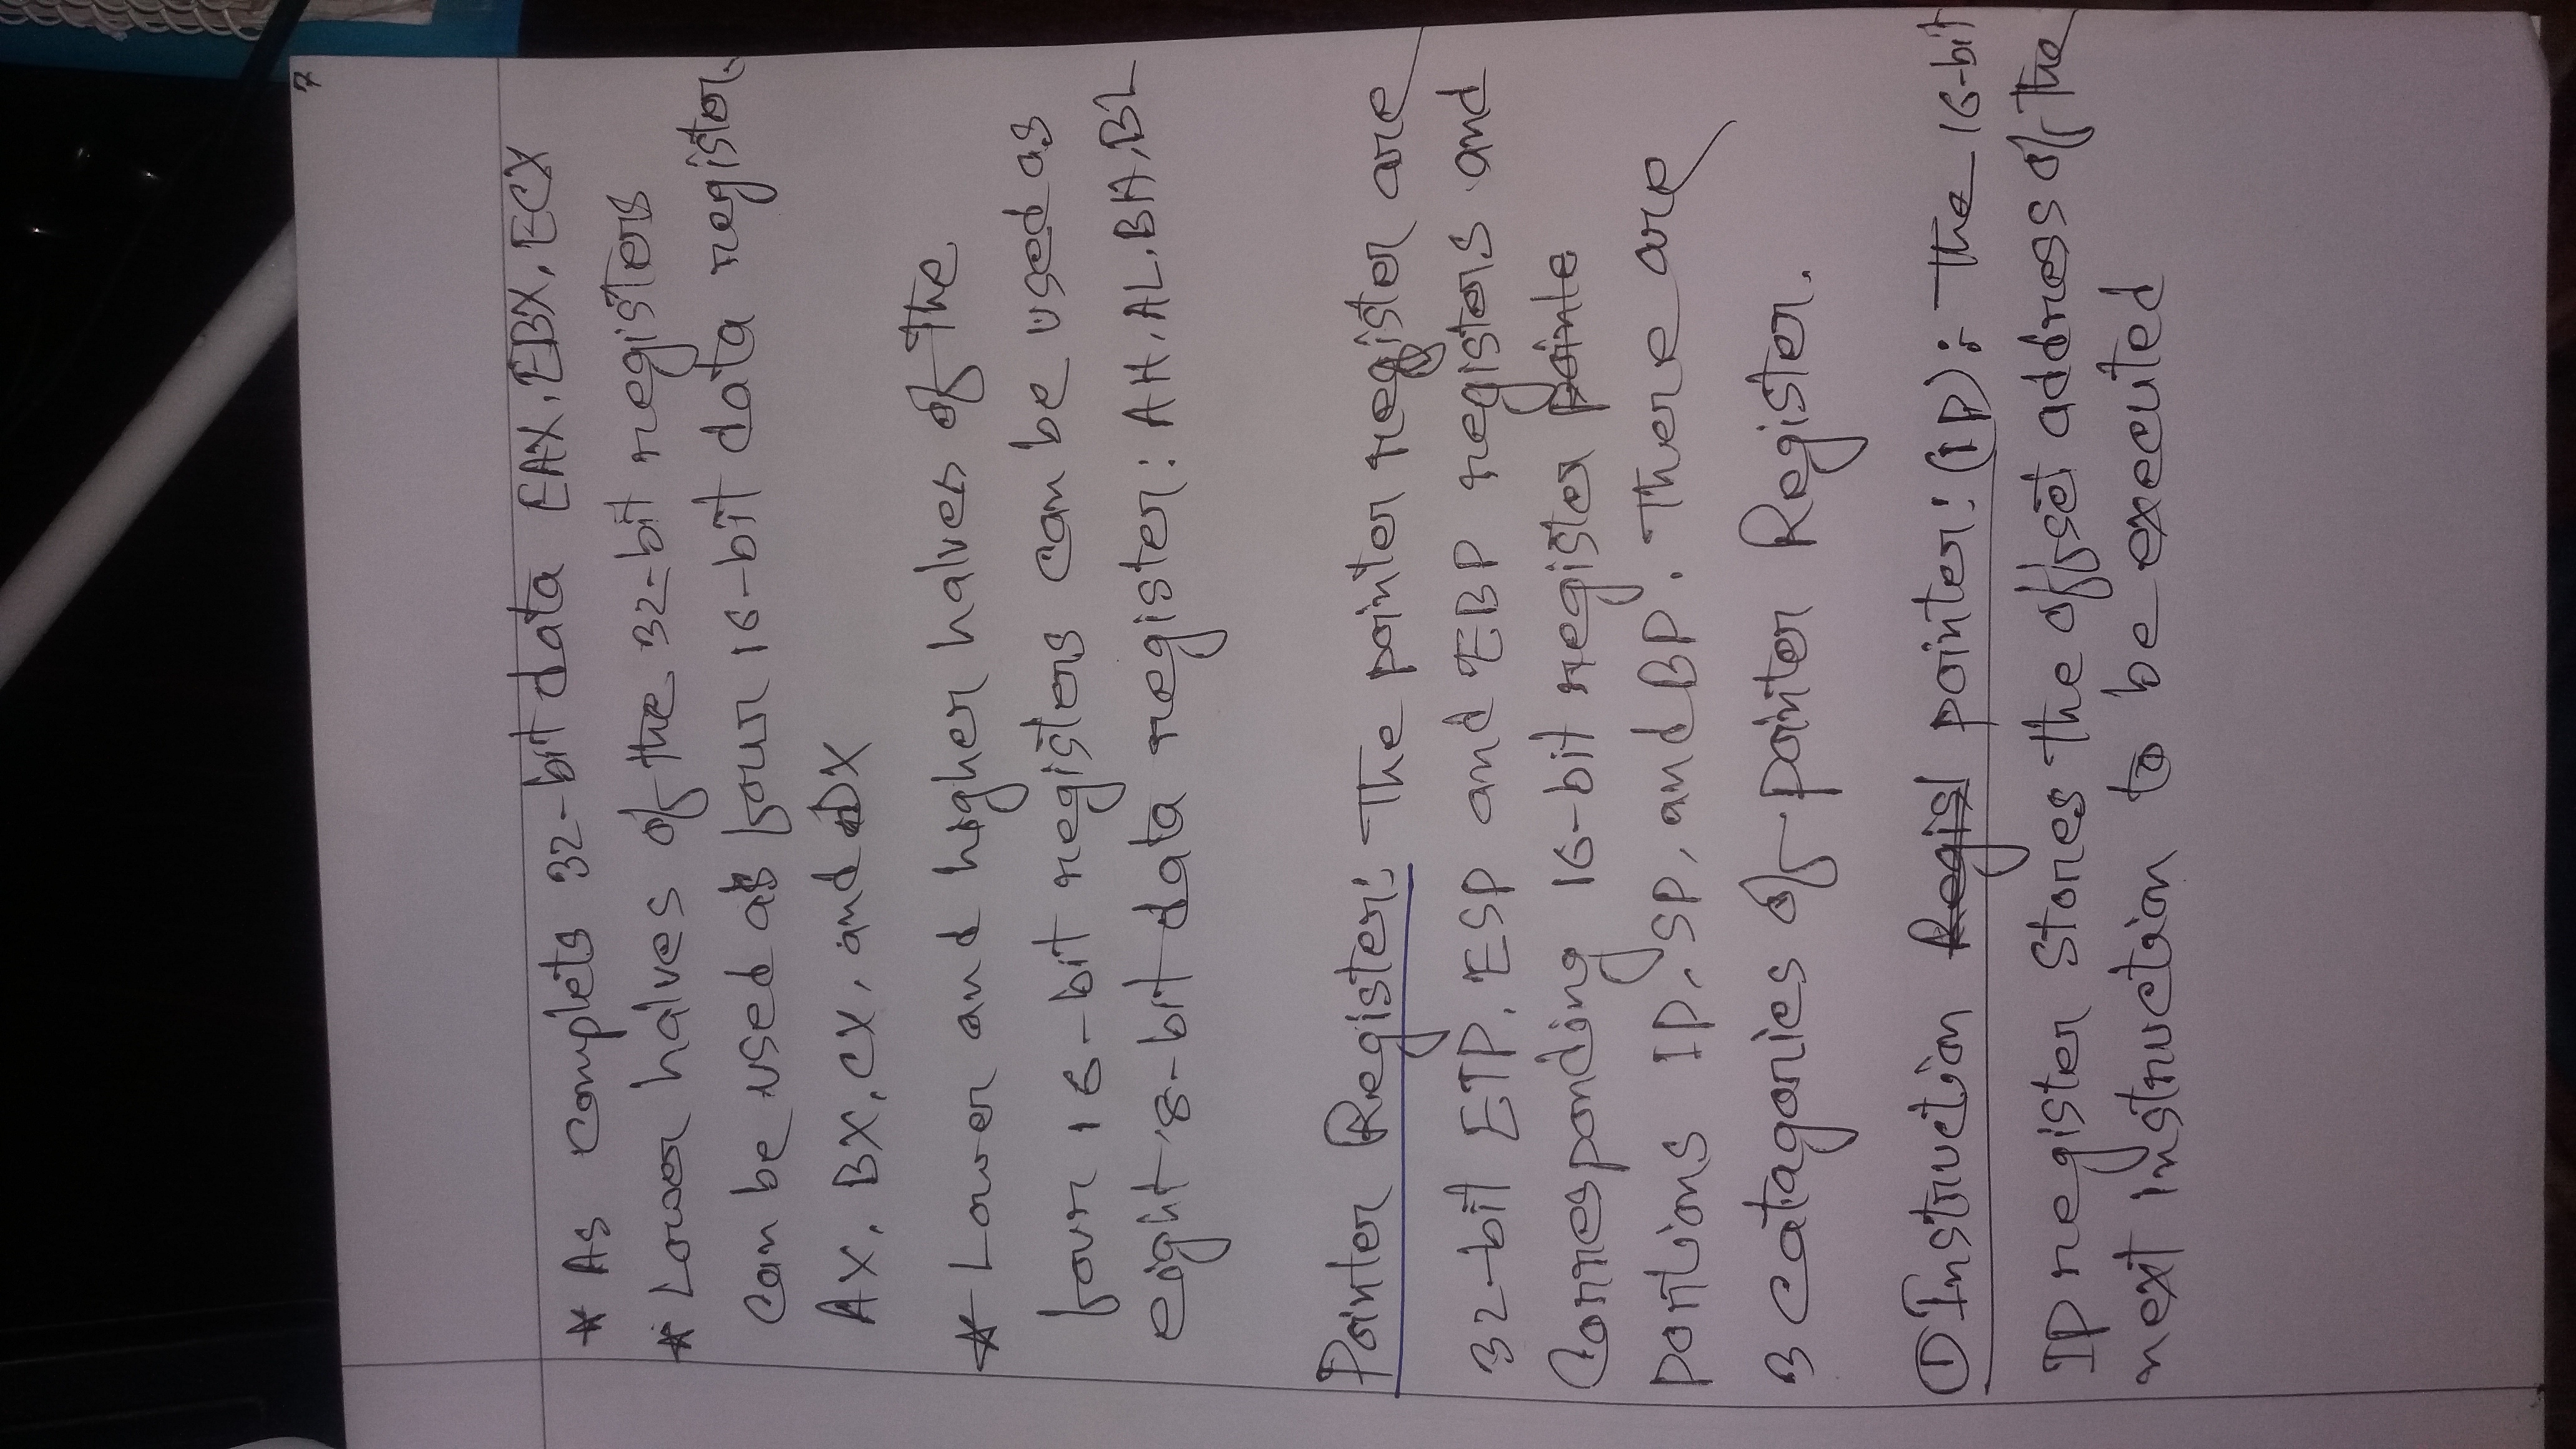 7
* As complets 32-bit data EAX, EBX, ECX
* Lower halves of the 32-bit registers
can be used as four 16-bit data register.
AX, BX, CX, and DX
* Lower and higher halves of the
four 16-bit registers can be used as
eight 8-bit data register: AH, AL, BH, BL
Pointer Register: The pointer register are
32-bit EIP, ESP and EBP registers and
Corresponding 16-bit register pointe
portions IP, SP, and BP. There are
3 catagories of pointer Register.
① Instruction Regist pointer: (IP): The 16-bit
IP register stores the offset address of the
next instruction to be executed